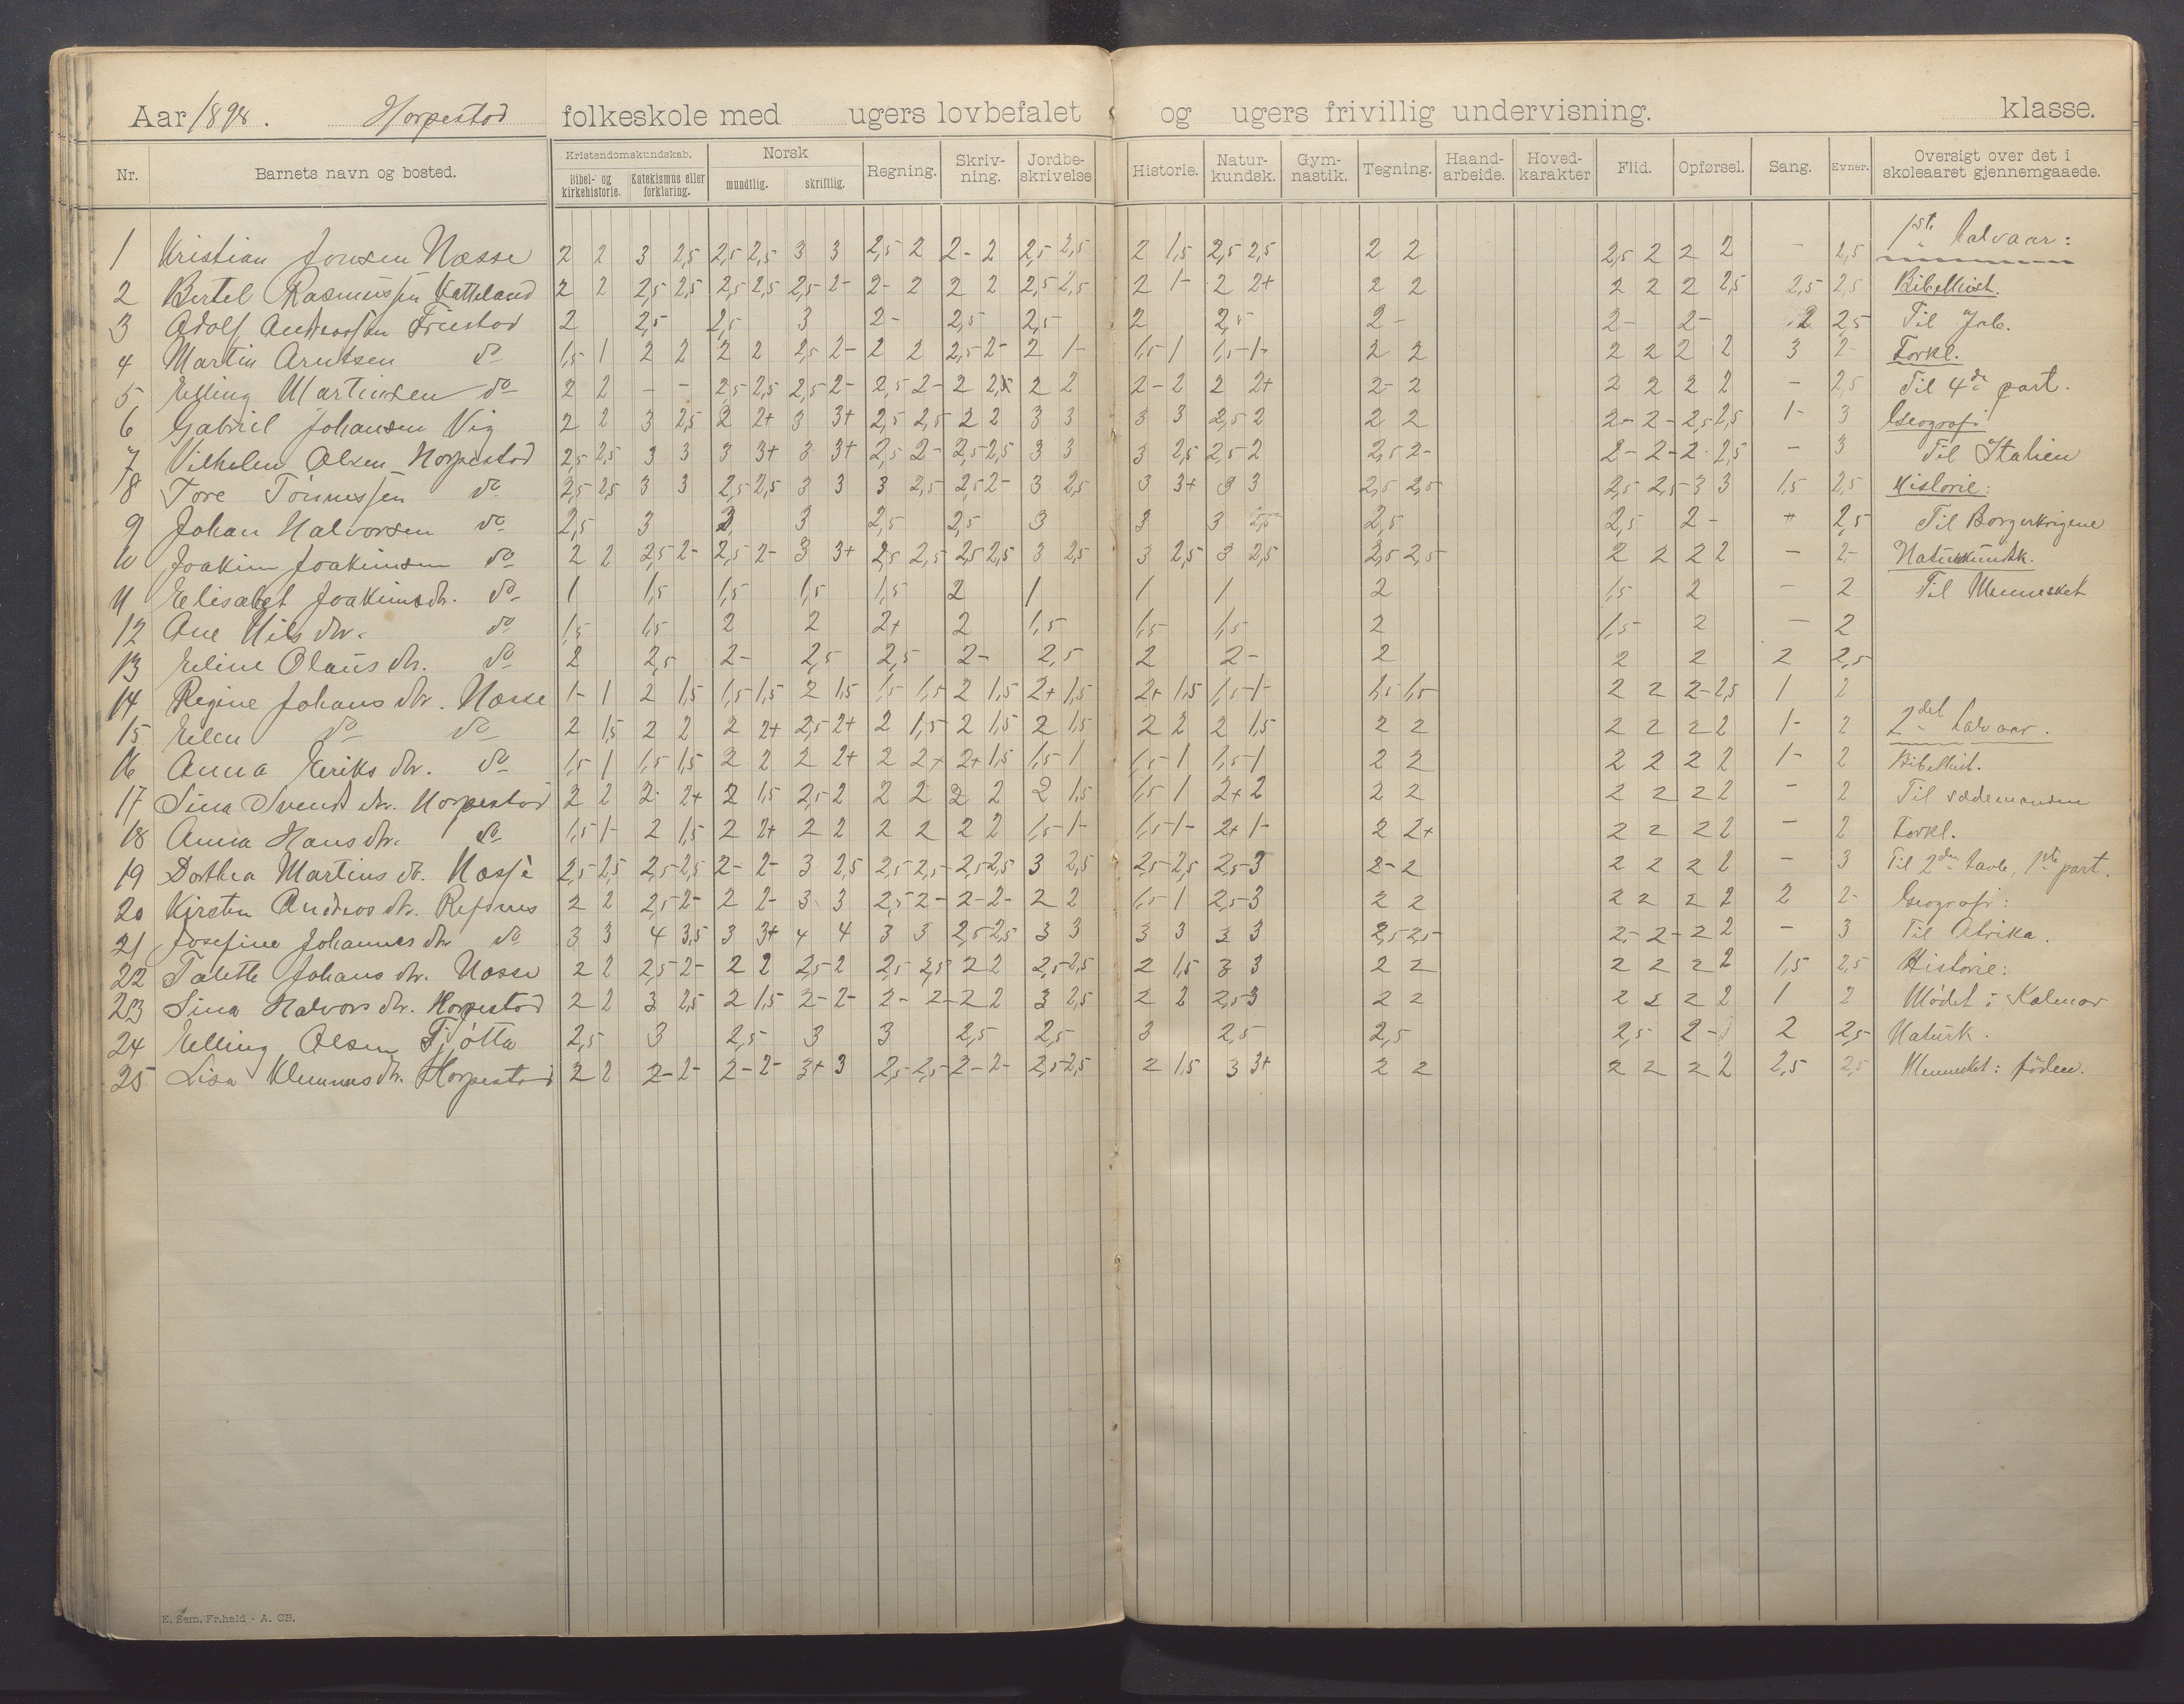 Aar 1898. Horpestad folkeskole med ugers lovbefalet og ugers frivillig undervisning. klasse.
Nr. Barnets navn og bosted. Kristendomskundskab. Bibel- og kirkehistorie. Katekismus eller forklaring. Norsk mundtlig. skriftlig. Regning. Skrivning. Jordbeskrivelse Historie. Naturkundsk. Gymnastik. Tegning. Haandarbeide. Hovedkarakter Flid. Opførsel. Sang. Evner. Oversigt over det i skoleaaret gjennemgaaede.
1 Kristian Jonsen Næsse 2 2 3 2,5 2,5 2,5 3 3 2,5 2 2- 2 2,5 2,5 2 1,5 2,5 2,5 2 2 2,5 2 2 2 - 2,5 1ste halvaar:
2 Bertel Rasmussen Katteland 2 2 2,5 2,5 2,5 2,5 2,5 2- 2- 2 2 2 2,5 2,5 2 1- 2 2+ 2 2 2 2 2 2,5 2,5 2,5 Bibelhist.
3 Adolf Andreassen Friestad 2 2,5 2,5 3 2- 2,5 2,5 2 2,5 2- 2- 2- 2 2,5 Til Job.
4 Martin Arntsen do 1,5 1 2 2 2 2 2,5 2- 2 2 2,5 2- 2 1- 1,5 1 1,5 1- 2 2 2 2 2 2 3 2- Forkl.
5 Elling Martinsen do 2 2 - - 2,5 2,5 2,5 2- 2,5 2- 2 2,5 2 2 2- 2 2 2+ 2- 2 2 2 2 2 - 2,5 Til 4de part.
6 Gabriel Johansen Vig 2 2 3 2,5 2 2+ 3 3+ 2,5 2,5 2 2 3 3 3 3 2,5 2 2 2 2- 2- 2,5 2,5 1- 3 Geografi
7 Vilhelm Olsen Horpestad 2,5 2,5 3 3 3 3+ 3 3+ 2,5 2- 2,5 2,5 3 3 3 2,5 2,5 2 2,5 2- 2- 2- 2- 2,5 - 3 Til Italien
8 Tore Tønnessen do 2,5 2,5 3 3 2,5 2,5 3 3 3 2,5 2,5 2- 3 2,5 3 3+ 3 3 2,5 2,5 2,5 2,5 3 3 1,5 2,5 Historie:
9 Johan Halvorsen do 2,5 3 3 3 2,5 2,5 3 3 3 2,5 2,5 2,5 2- 2,5 Til Borgerkrigene
10 Joakim Joakimsen do 2 2 2,5 2- 2,5 2- 3 3+ 2,5 2,5 2,5 2,5 3 2,5 3 2,5 3 2,5 2,5 2,5 2 2 2 2 - 2- Naturkundsk.
11 Elisabet Joakimsdr. do 1 1,5 1,5 1,5 1,5 2 1 1 1 2 1,5 2 - 2 Til Mennesket
12 Ane Nilsdtr. do 1,5 1,5 2 2 2+ 2 1,5 1,5 1,5 2 1,5 2 - 2
13 Eline Olausdtr. do 2 2,5 2- 2,5 2,5 2- 2,5 2 2- 2 2 2 2 2,5
14 Regine Johansdtr. Næsse 1- 1 2 1,5 1,5 1,5 2 1,5 1,5 1,5 2 1,5 2+ 1,5 2+ 1,5 1,5 1- 1,5 1,5 2 2 2- 2,5 1 2
15 Ellen do do 2 1,5 2 2 2 2+ 2,5 2+ 2 1,5 2 1,5 2 1,5 2 2 2 1,5 2 2 2 2 2 2 1- 2 2det halvaar.
16 Anna Eriksdtr. do 1,5 1 1,5 1,5 2 2 2 2+ 2 2+ 2+ 1,5 1,5 1 1,5 1 1,5 1 2 2 2 2 2 2 1- 2 Bibelhist.
17 Sina Svendsdtr. Horpestad 2 2 2- 2+ 2 1,5 2,5 2 2 2 2 2 2 1,5 1,5 1 2+ 2 2 2 2 2 2 2 - 2 Til sædemanden
18 Anna Hansdtr. do 1,5 1- 2 1,5 2 2+ 2 2 2 2 2 2 1,5 1- 1,5 1- 2+ 1- 2 2+ 2 2 2 2 - 2 Forkl.
19 Dorthea Martinsdtr. Næsse 2,5 2,5 2,5 2,5 2- 2- 3 2,5 2,5 2,5 2,5 2,5 3 2,5 2,5 2,5 2,5 3 2- 2 2 2 2 2 - 3 Til 2den tavle, 1ste part.
20 Kirsten Andreasdtr. Refsnes 2 2 2,5 2- 2 2- 3 3 2,5 2- 2- 2- 2 2 1,5 1 2,5 3 2 2 2 2 2 2 2 2- Geografi:
21 Josefine Johannesdtr do 3 3 4 3,5 3 3+ 4 4 3 3 2,5 2,5 3 3 3 3 3 3 2,5 2,5 2- 2- 2 2 - 3 Til Afrika.
22 Talette Johansdtr. Næsse 2 2 2,5 2- 2 2 2,5 2 2,5 2,5 2 2 2,5 2,5 2 1,5 3 3 2 2 2 2 2 2 1,5 2,5 Historie:
23 Sina Halvorsdtr. Horpestad 2 2 3 2,5 2 1,5 2- 2- 2- 2- 2 2 3 2,5 2 2 2,5 3 2 2 2 2 2 2 1 2 Mødet i Kalmar
24 Elling Olsen Tjøtta 2,5 3 2,5 3 3 2,5 2,5 3 2,5 2,5 2,5 2- 2 2,5 Naturk.
25 Lisa Klemmesdtr. Horpestad 2 2 2- 2- 2- 2- 3+ 3 2,5 2,5 2- 2- 2,5 2,5 2 1,5 3 3+ 2 2 2 2 2 2 2,5 2,5 Mennesket: føden.
E. Sem, Fr.hald - A. CB.